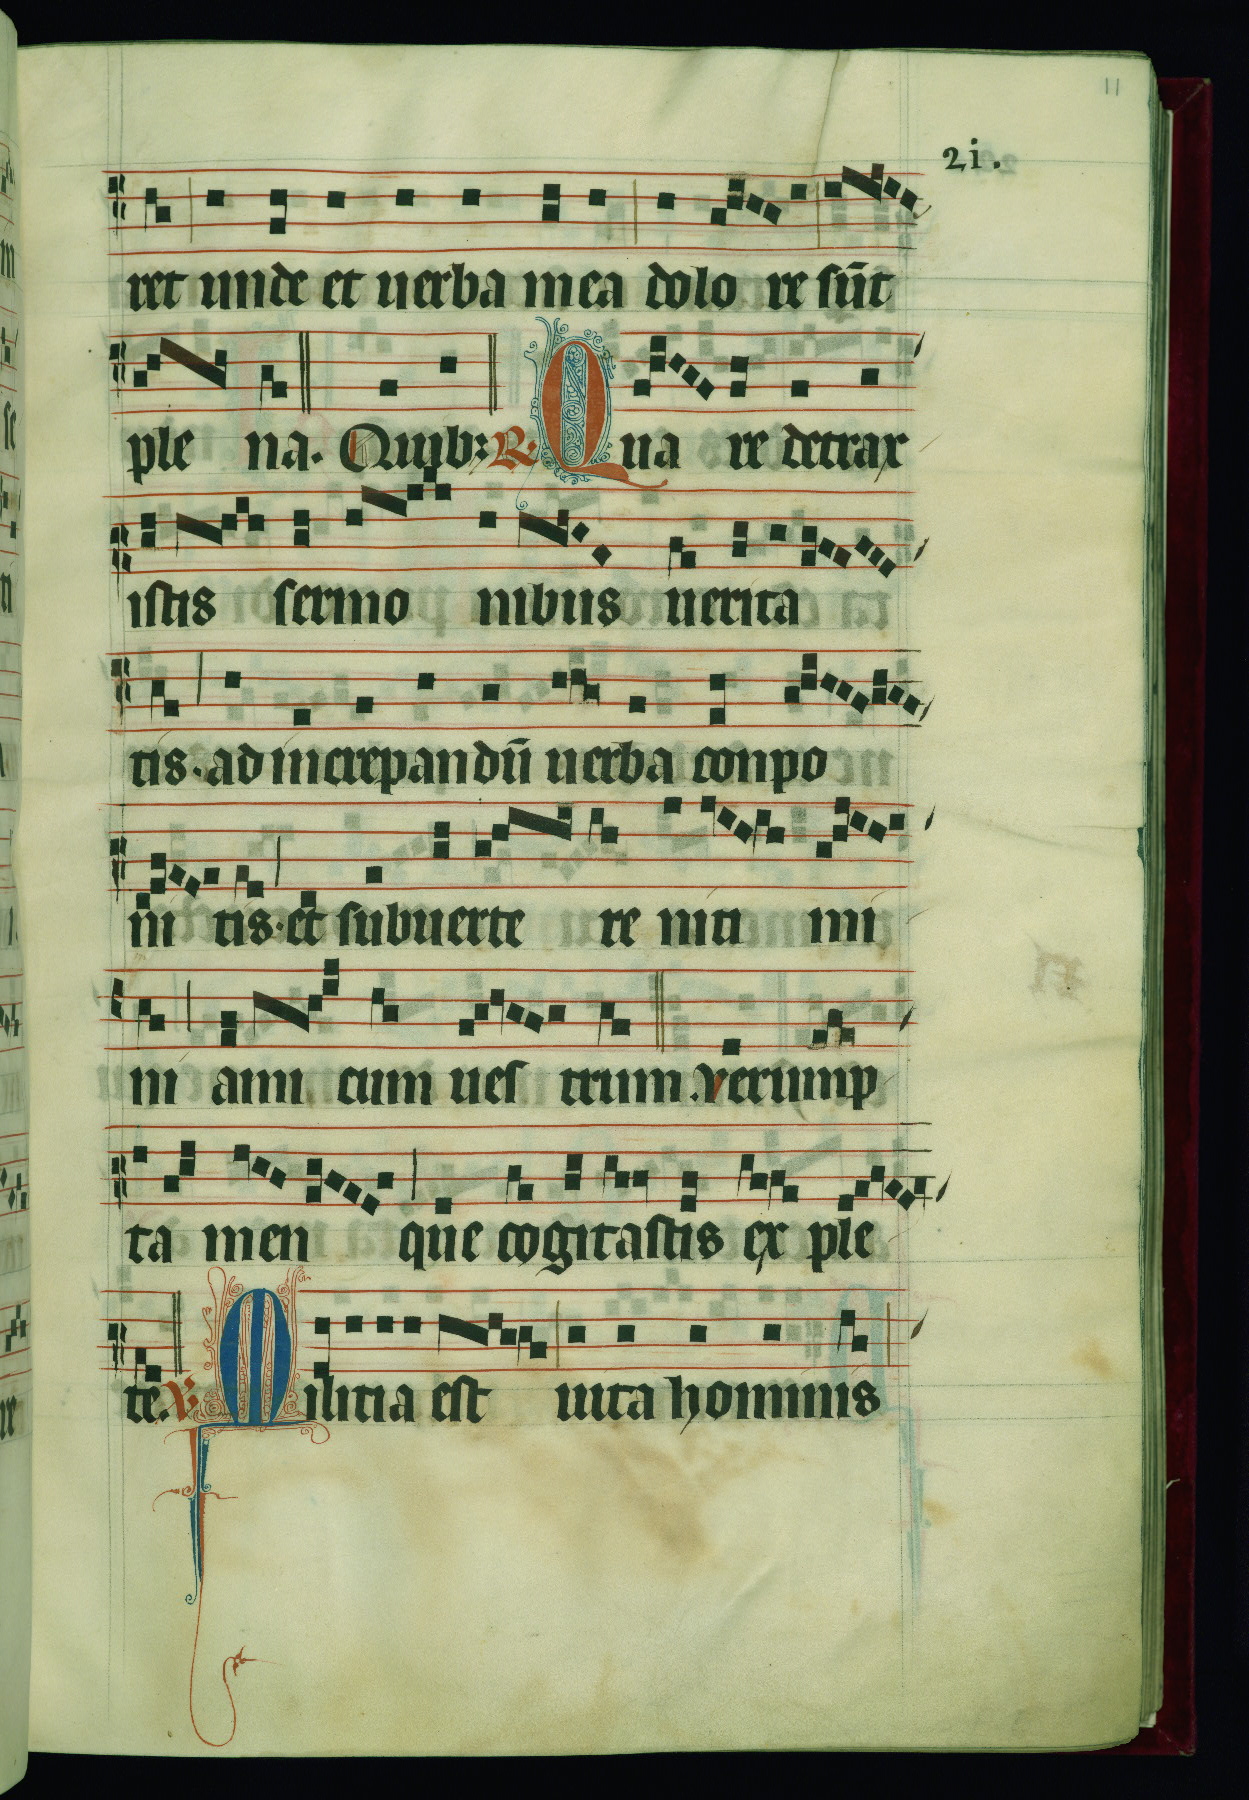 11
21.
ret unde et uerba mea dolo re sūt
ple na. Quib; R Qua re detrax
istis sermo nibus uerita
tis. ad increpandū uerba conpo
ni tis. et subuerte re niti mi
ni ami cum ues trum. Verump
ta men que cogitastis ex ple
te. V Militia est uita hominis